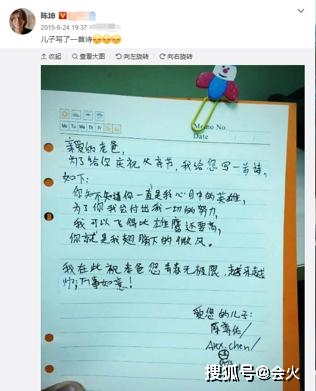 陈坤
2015-6-24 19:37
儿子写了一首诗
收起 查看大图 向左旋转 向右旋转
Memo No.
Date
Mo Tu We Th Fr Sa Su
亲爱的老爸,
为了给你庆祝父亲节,我给您写一首诗,
如下:
你知不知道你一直是我心目中的英雄,
为了你我会付出我一切的努力,
我可以飞得比雄鹰还要高,
你就是我翅膀下的微风。
我在此祝老爸您青春无极限,越来越
帅,万事如意!
爱您的儿子:
陈尊佑/
Alex.chen/
搜狐号@会火